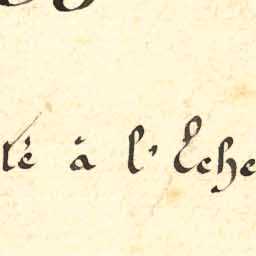 té à l'Eche